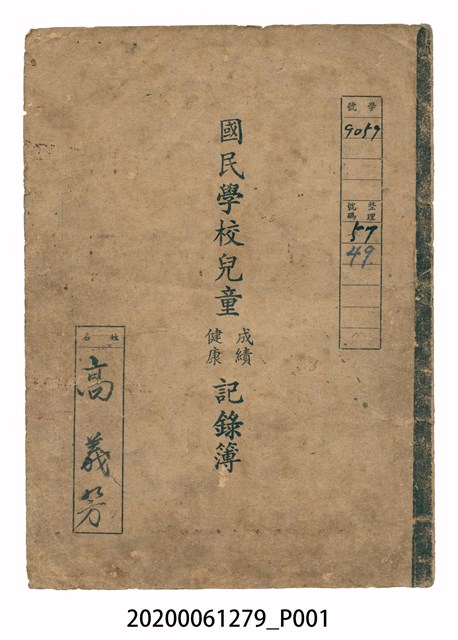 學號
9059
整理號碼
57
49
國民學校兒童成績健康記錄簿
姓名
高義芳
20200061279_P001